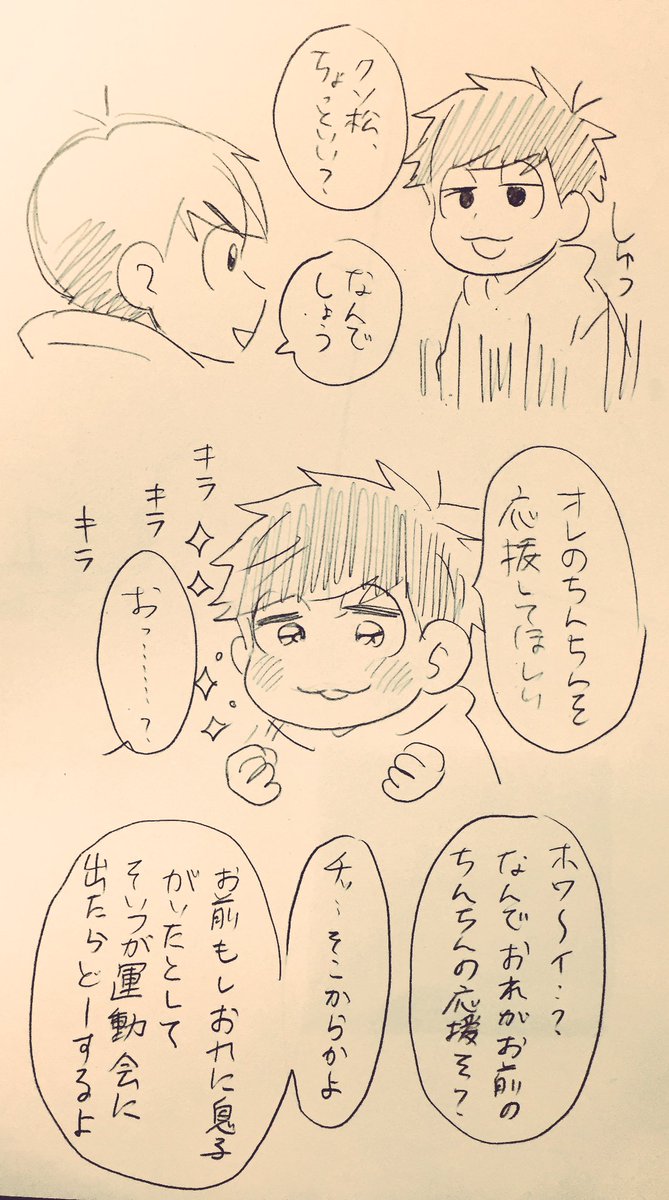 クソ松、
ちょっといい?
しゅっ
なんで
しょう
オレのちんちんを
応援してほしい
キラ
キラ
キラ
おっ………?
ホワ〜イ…?
なんでおれがお前の
ちんちんの応援を?
チッ…そこからかよ
お前もしおれに息子
がいたとして
そいつが運動会に
出たらどーするよ